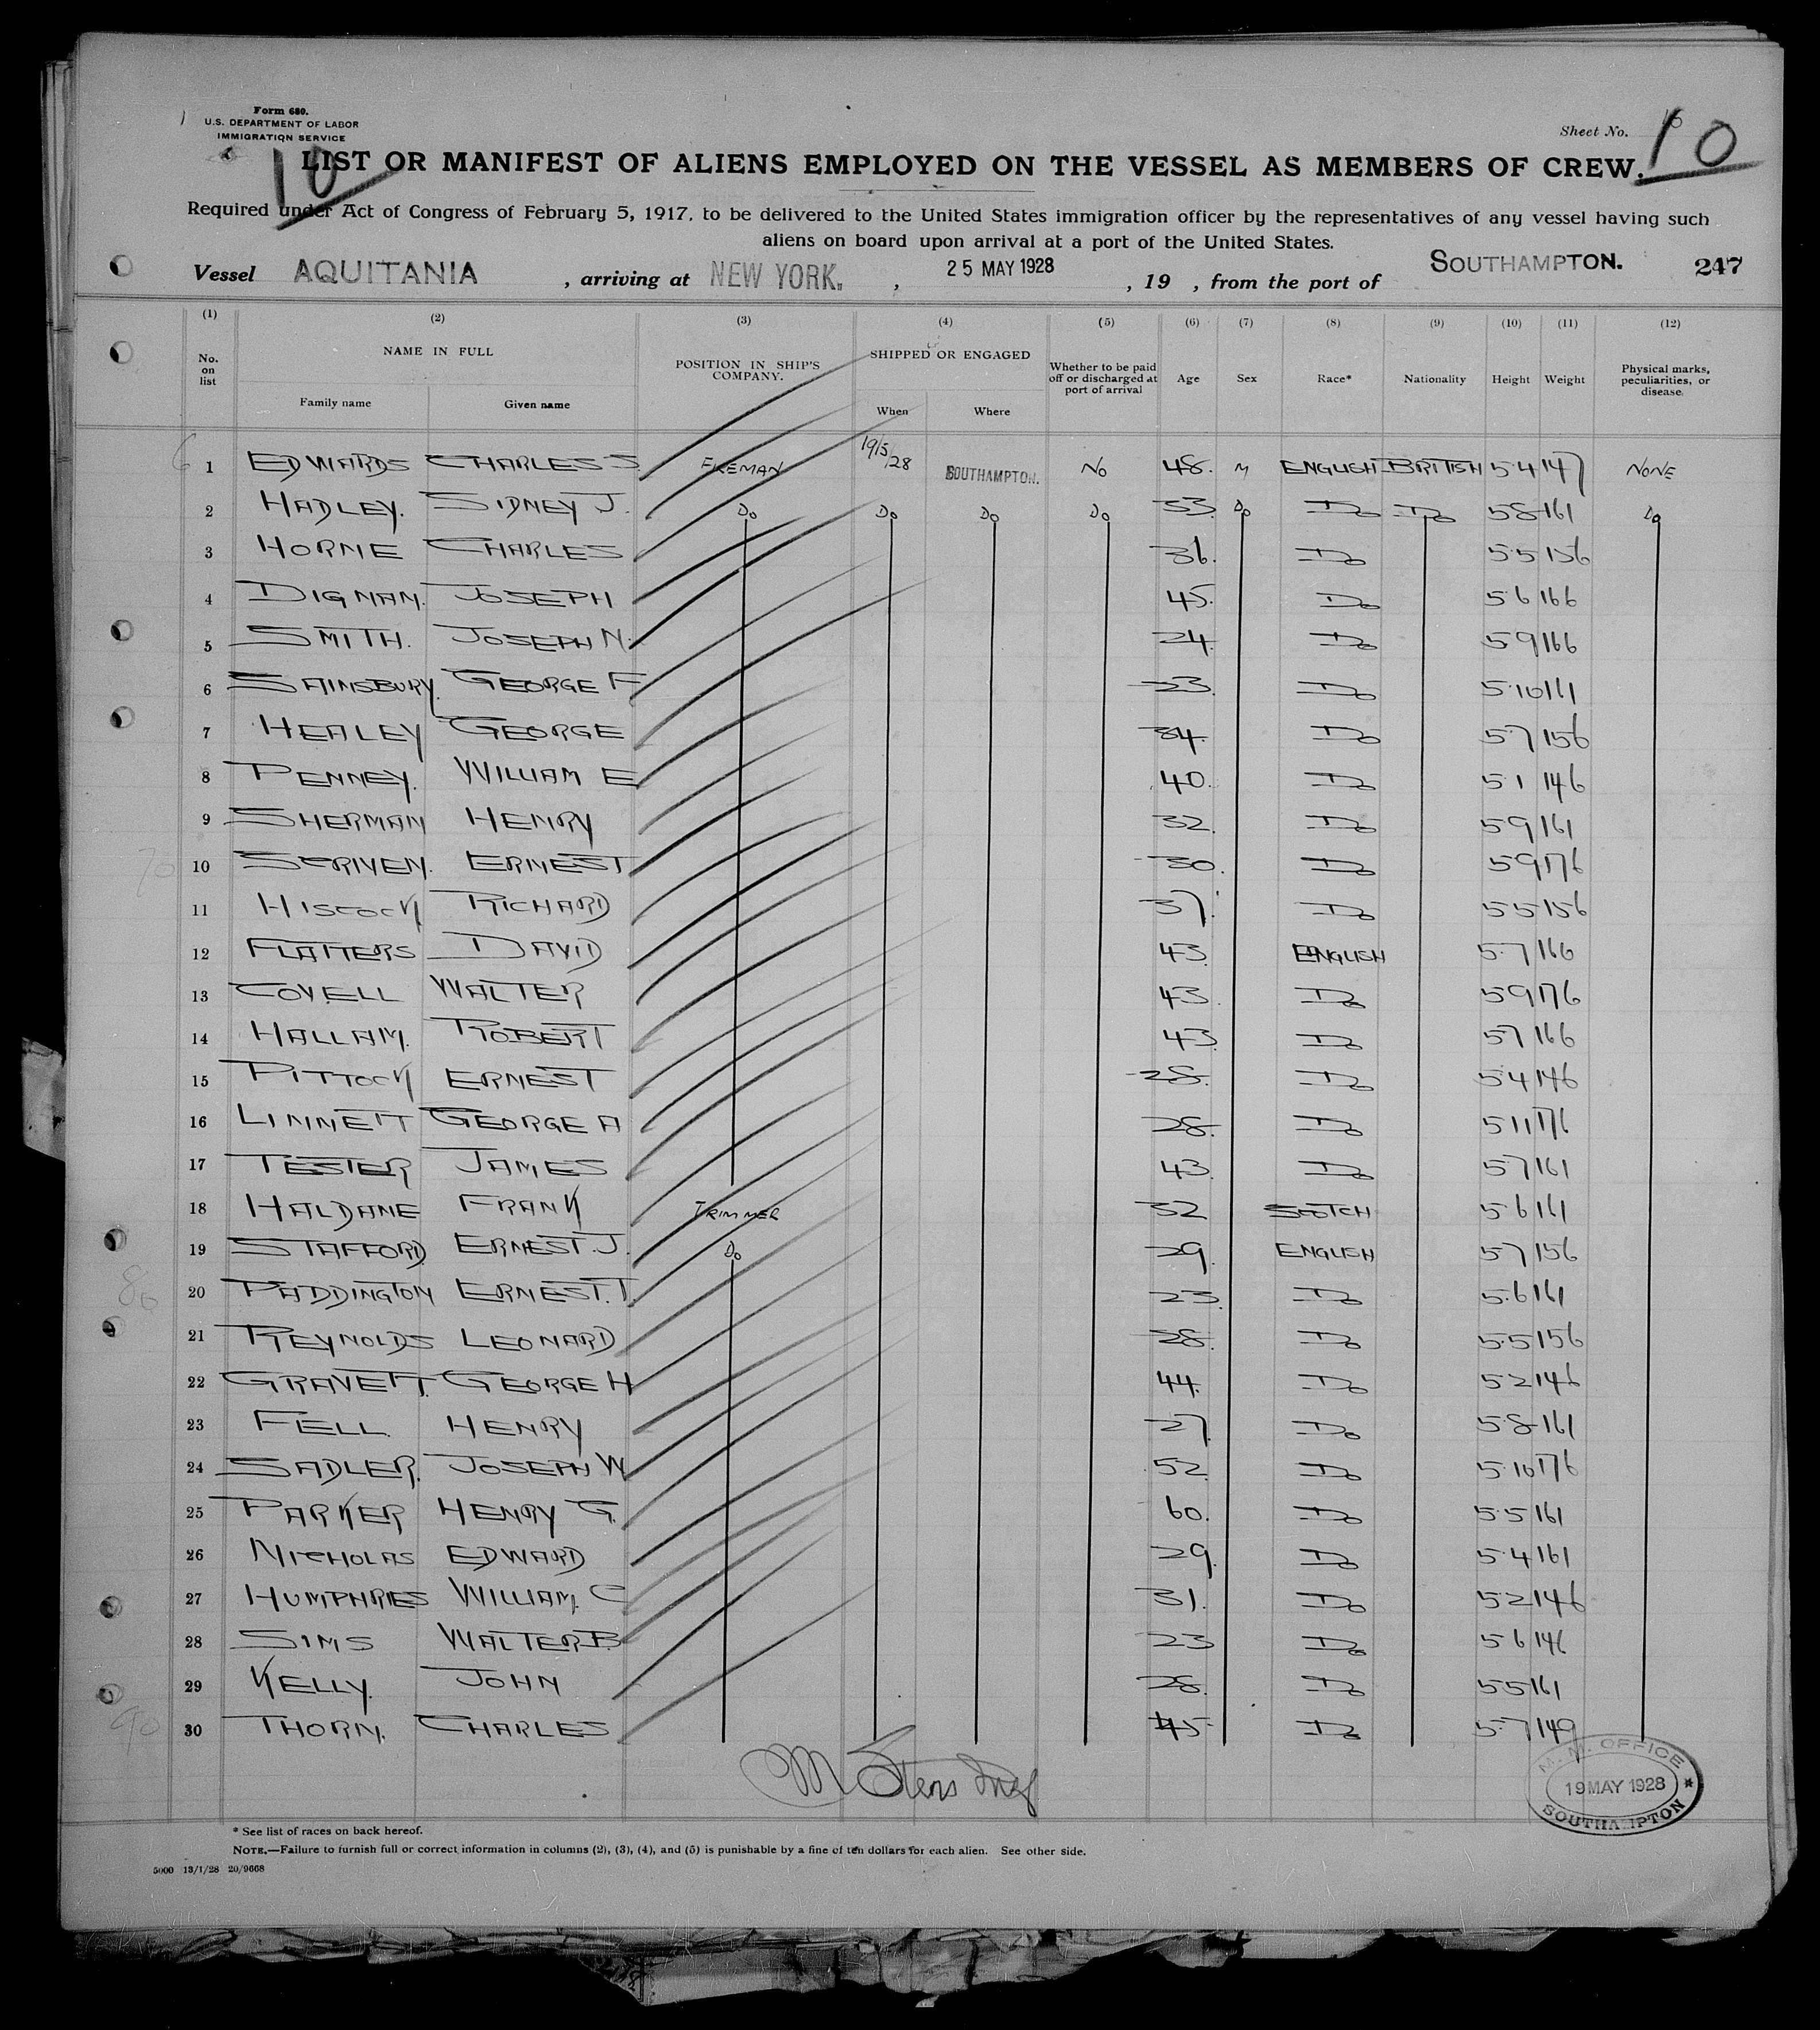 Form 680.
U.S. DEPARTMENT OF LABOR
IMMIGRATION SERVICE
Sheet No. 10
10
LIST OR MANIFEST OF ALIENS EMPLOYED ON THE VESSEL AS MEMBERS OF CREW.
Required under Act of Congress of February 5, 1917, to be delivered to the United States immigration officer by the representatives of any vessel having such
aliens on board upon arrival at a port of the United States.
Vessel AQUITANIA , arriving at NEW YORK. , 25 MAY 1928 , 19 , from the port of SOUTHAMPTON. 247
(1) (2) (3) (4) (5) (6) (7) (8) (9) (10) (11) (12)
No. on list NAME IN FULL Family name Given name POSITION IN SHIP'S COMPANY. SHIPPED OR ENGAGED When Where Whether to be paid off or discharged at port of arrival Age Sex Race* Nationality Height Weight Physical marks, peculiarities, or disease.
1 EDWARDS CHARLES S FIREMAN 19/5/28 SOUTHAMPTON. NO 48. M ENGLISH BRITISH 5.4 147 NONE
2 HADLEY. SIDNEY J. DO DO DO DO 33 DO DO DO 5 8 161 DO
3 HORNE CHARLES 36. DO 5.5 156
4 DIGNAM. JOSEPH 45. DO 5 6 166
5 SMITH. JOSEPH N. 24. DO 5 9 166
6 SAINSBURY. GEORGE F 23. DO 5.10 161
7 HEALEY GEORGE 34. DO 5.7 156
8 PENNEY. WILLIAM E 40. DO 5 1 146
9 SHERMAN HENRY 32. DO 5 9 161
10 SCRIVEN. ERNEST 30. DO 5 9 176
11 HISCOCK RICHARD 37. DO 5 5 156
12 FLATTERS DAVID 43. ENGLISH 5.7 166
13 COVELL WALTER 43. DO 5 9 176
14 HALLAM. ROBERT 43. DO 5 7 166
15 PITTOCK ERNEST 28. DO 5 4 146
16 LINNETT GEORGE A 28. DO 5 11 176
17 TESTER JAMES 43. DO 5 7 161
18 HALDANE FRANK TRIMMER 32 SCOTCH 5.6 161
19 STAFFORD ERNEST. J. DO 29. ENGLISH 5 7 156
20 PADDINGTON ERNEST. T. 23. DO 5.6 161
21 REYNOLDS LEONARD 28. DO 5.5 156
22 GRAVETT. GEORGE H 44. DO 5 2 146
23 FELL. HENRY 27. DO 5.8 161
24 SADLER. JOSEPH W 52. DO 5.10 176
25 PARKER HENRY G. 60. DO 5.5 161
26 NICHOLAS EDWARD 29. DO 5.4 161
27 HUMPHRIES WILLIAM. C 31. DO 5.2 146
28 SIMS WALTER B. 23 DO 5 6 146
29 KELLY. JOHN 28. DO 5 5 161
30 THORN. CHARLES 45 DO 5.7 149
M. M. OFFICE
19 MAY 1928
SOUTHAMPTON
* See list of races on back hereof.
NOTE.—Failure to furnish full or correct information in columns (2), (3), (4), and (5) is punishable by a fine of ten dollars for each alien. See other side.
5000 13/1/28 20/9668